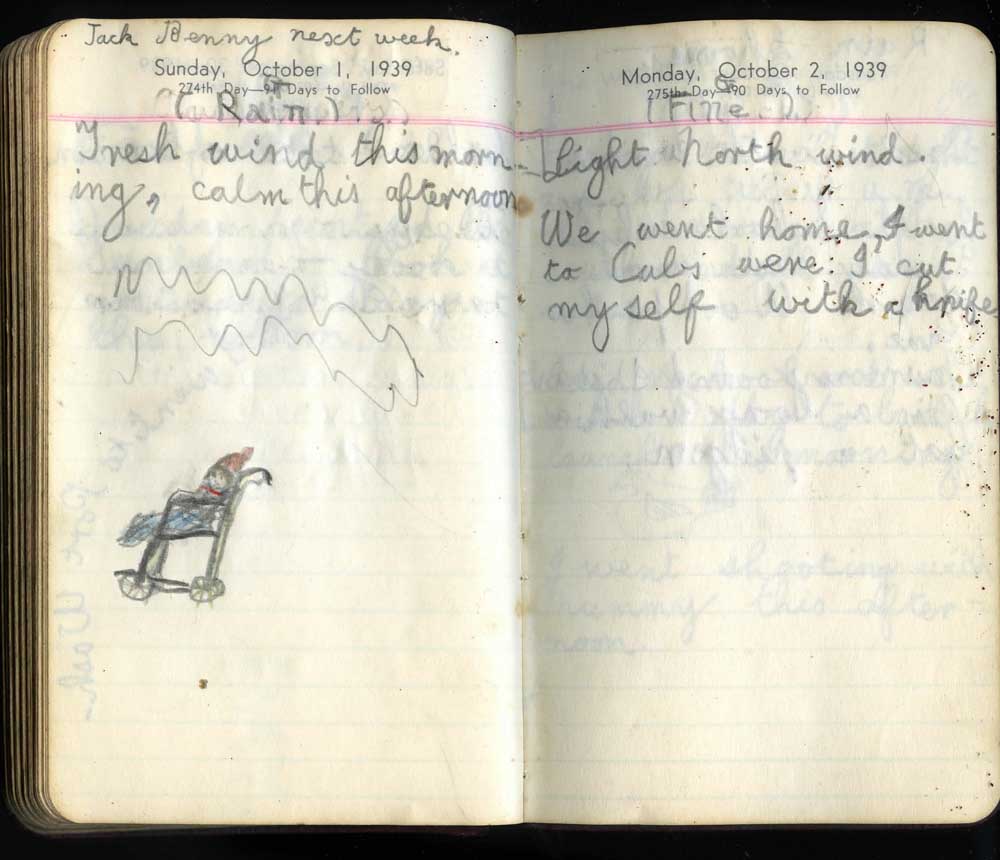 Jack Benny next week.
Sunday, October 1, 1939
274th Day—91 Days to Follow
(Rain)
Fresh wind this morn-
ing, calm this afternoon
Monday, October 2, 1939
275th Day—90 Days to Follow
(Fine.)
Light North wind.
We went home, I went
to Cubs were I cut
my self with a knife